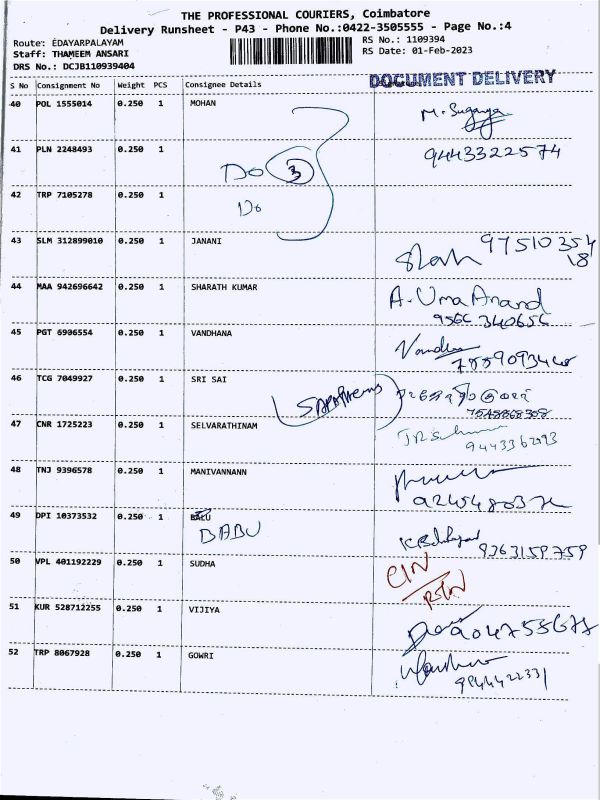 THE PROFESSIONAL COURIERS, Coimbatore
Delivery Runsheet - P43 - Phone No.:0422-3505555 - Page No.:4
Route: EDAYARPALAYAM
RS No.: 1109394
Staff: THAMEEM ANSARI
RS Date: 01-Feb-2023
DRS No.: DCJB110939404
DOCUMENT DELIVERY
S No Consignment No Weight PCS Consignee Details
40 POL 1555014 0.250 1 MOHAN
M. Suganya
41 PLN 2248493 0.250 1
9443322574
Do 3
42 TRP 7105278 0.250 1
Do
43 SLM 312899010 0.250 1 JANANI
97510354
18
44 MAA 942696642 0.250 1 SHARATH KUMAR
A. Uma Anand
9566 340656
45 PGT 6906554 0.250 1 VANDHANA
46 TCG 7049927 0.250 1 SRI SAI
47 CNR 1725223 0.250 1 SELVARATHINAM
9443362093
48 TNJ 9396578 0.250 1 MANIVANNANN
49 DPI 10373532 0.250 1 BALU
BABU
9363159759
50 VPL 401192229 0.250 1 SUDHA
CIN
RTN
51 KUR 528712255 0.250 1 VIJIYA
52 TRP 8067928 0.250 1 GOWRI
9944422331